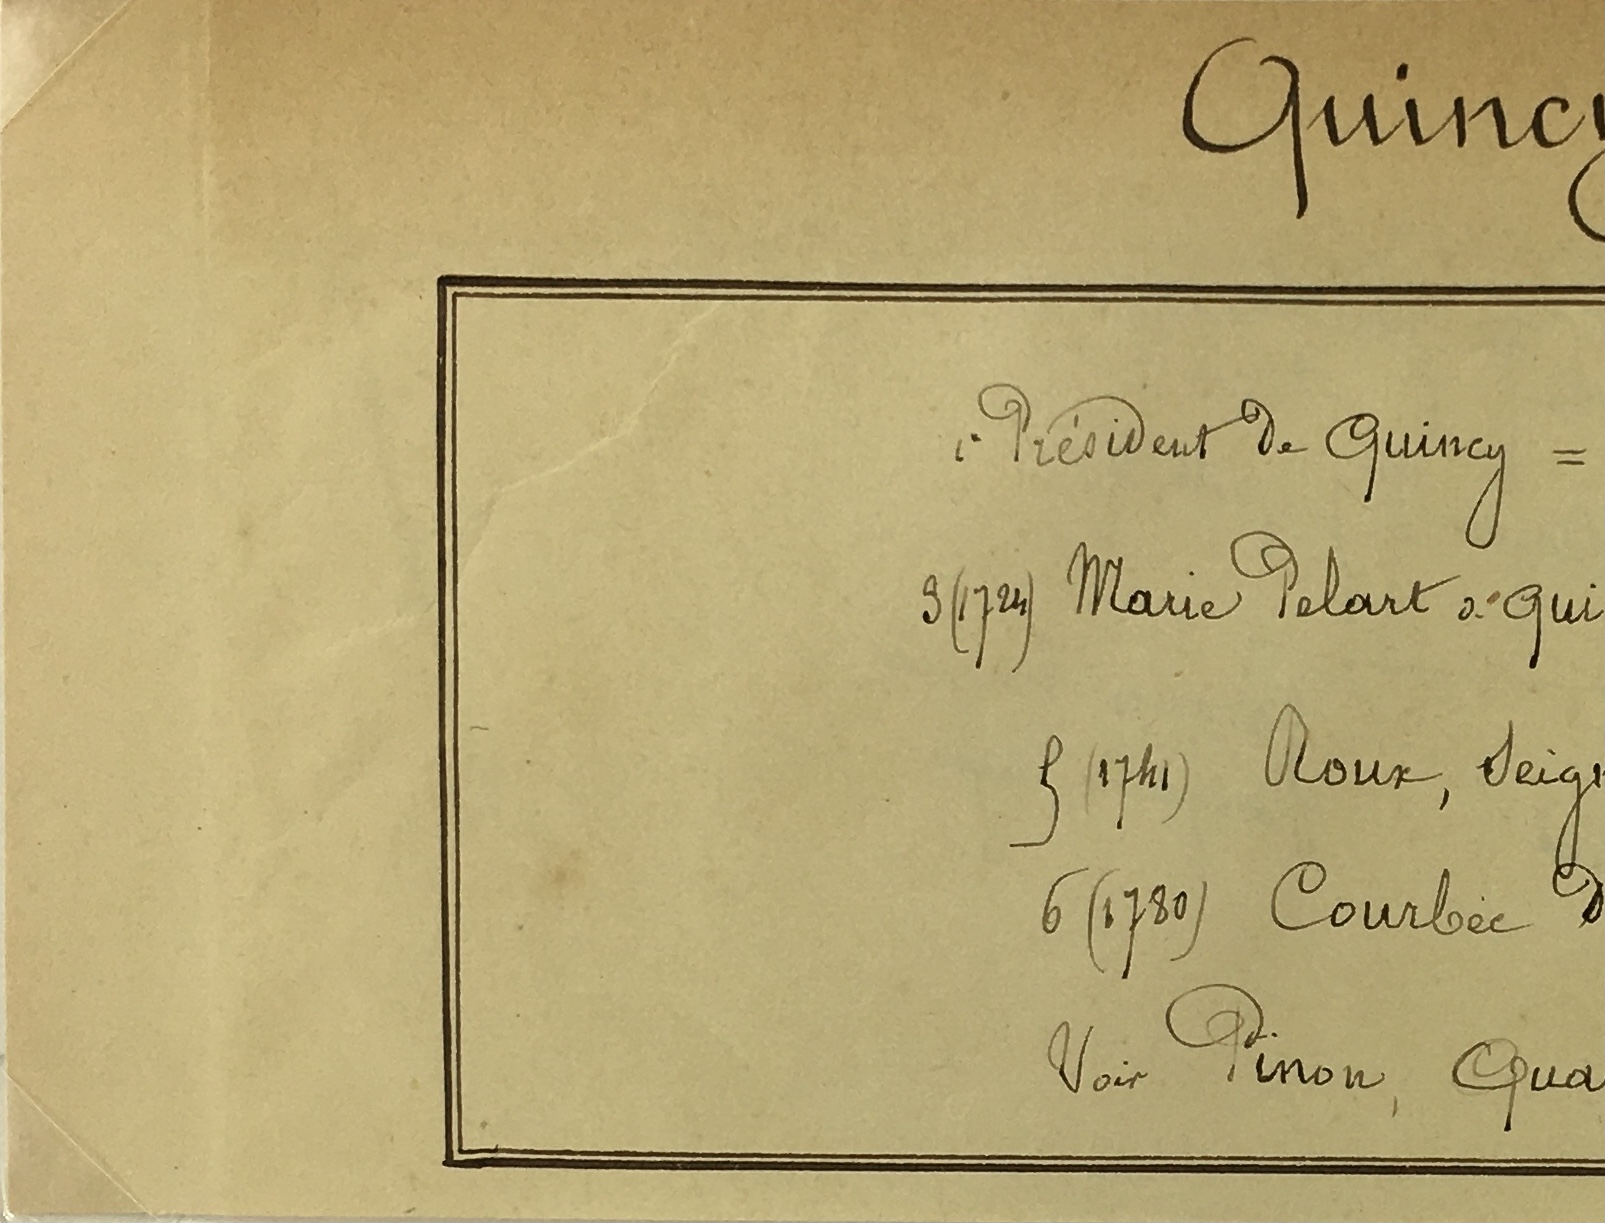 Quincy
1. Président de Quincy =
3 (1724) Marie Pelart d. Qui
5 (1741) Roux, Seign
6 (1780) Courbée D
Voir Pinon, Qua